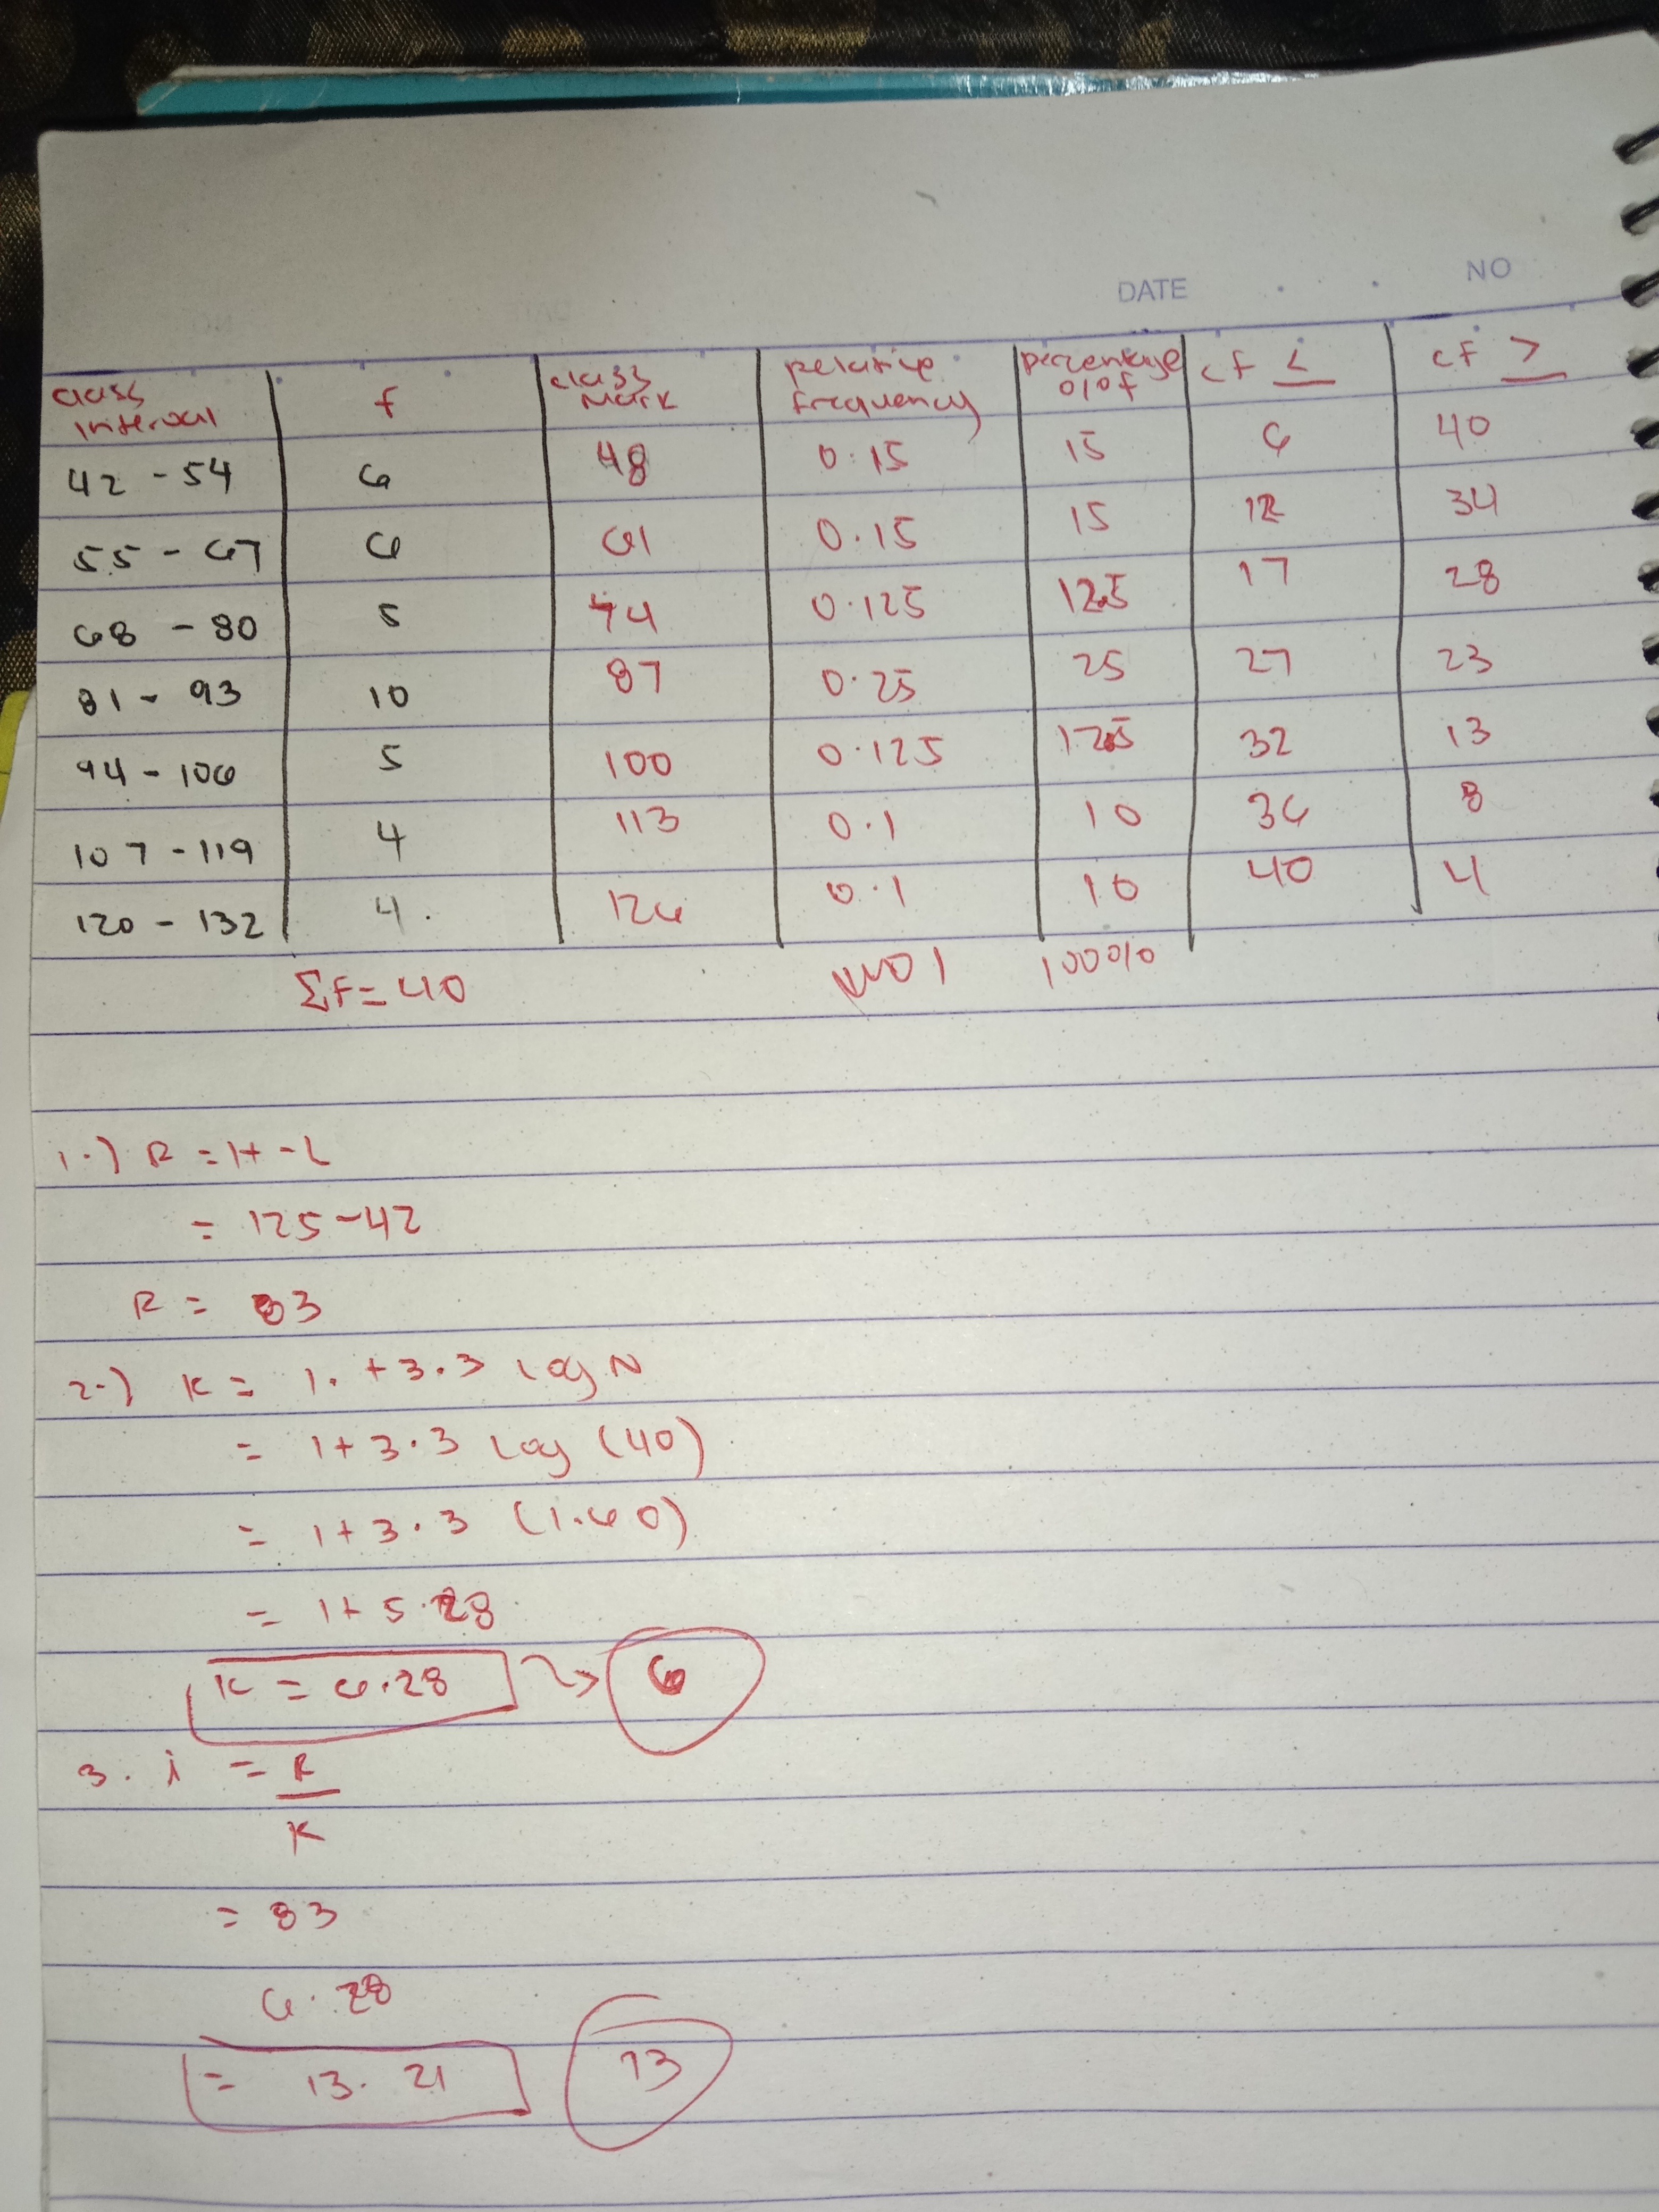 DATE NO
class interval f class mark relative frequency percentage %f cf ≤ cf ≥
42 - 54 6 48 0.15 15 6 40
55 - 67 6 61 0.15 15 12 34
68 - 80 5 74 0.125 12.5 17 28
81 - 93 10 87 0.25 25 27 23
94 - 106 5 100 0.125 12.5 32 13
107 - 119 4 113 0.1 10 36 8
120 - 132 4 126 0.1 10 40 4
Σf = 40 1 100%
1.) R = H - L
= 125 - 42
R = 83
2.) K = 1. + 3.3 log N
= 1 + 3.3 log (40)
= 1 + 3.3 (1.60)
= 1 + 5.28
K = 6.28 6
3. i = R
K
= 83
6.28
= 13.21 13